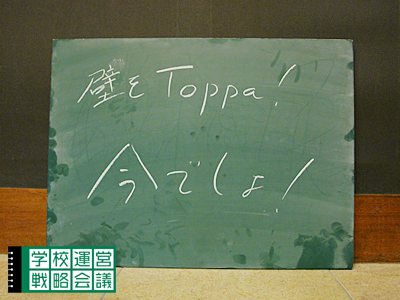 壁をToppa!
今でしょ!
学校運営
戦略会議